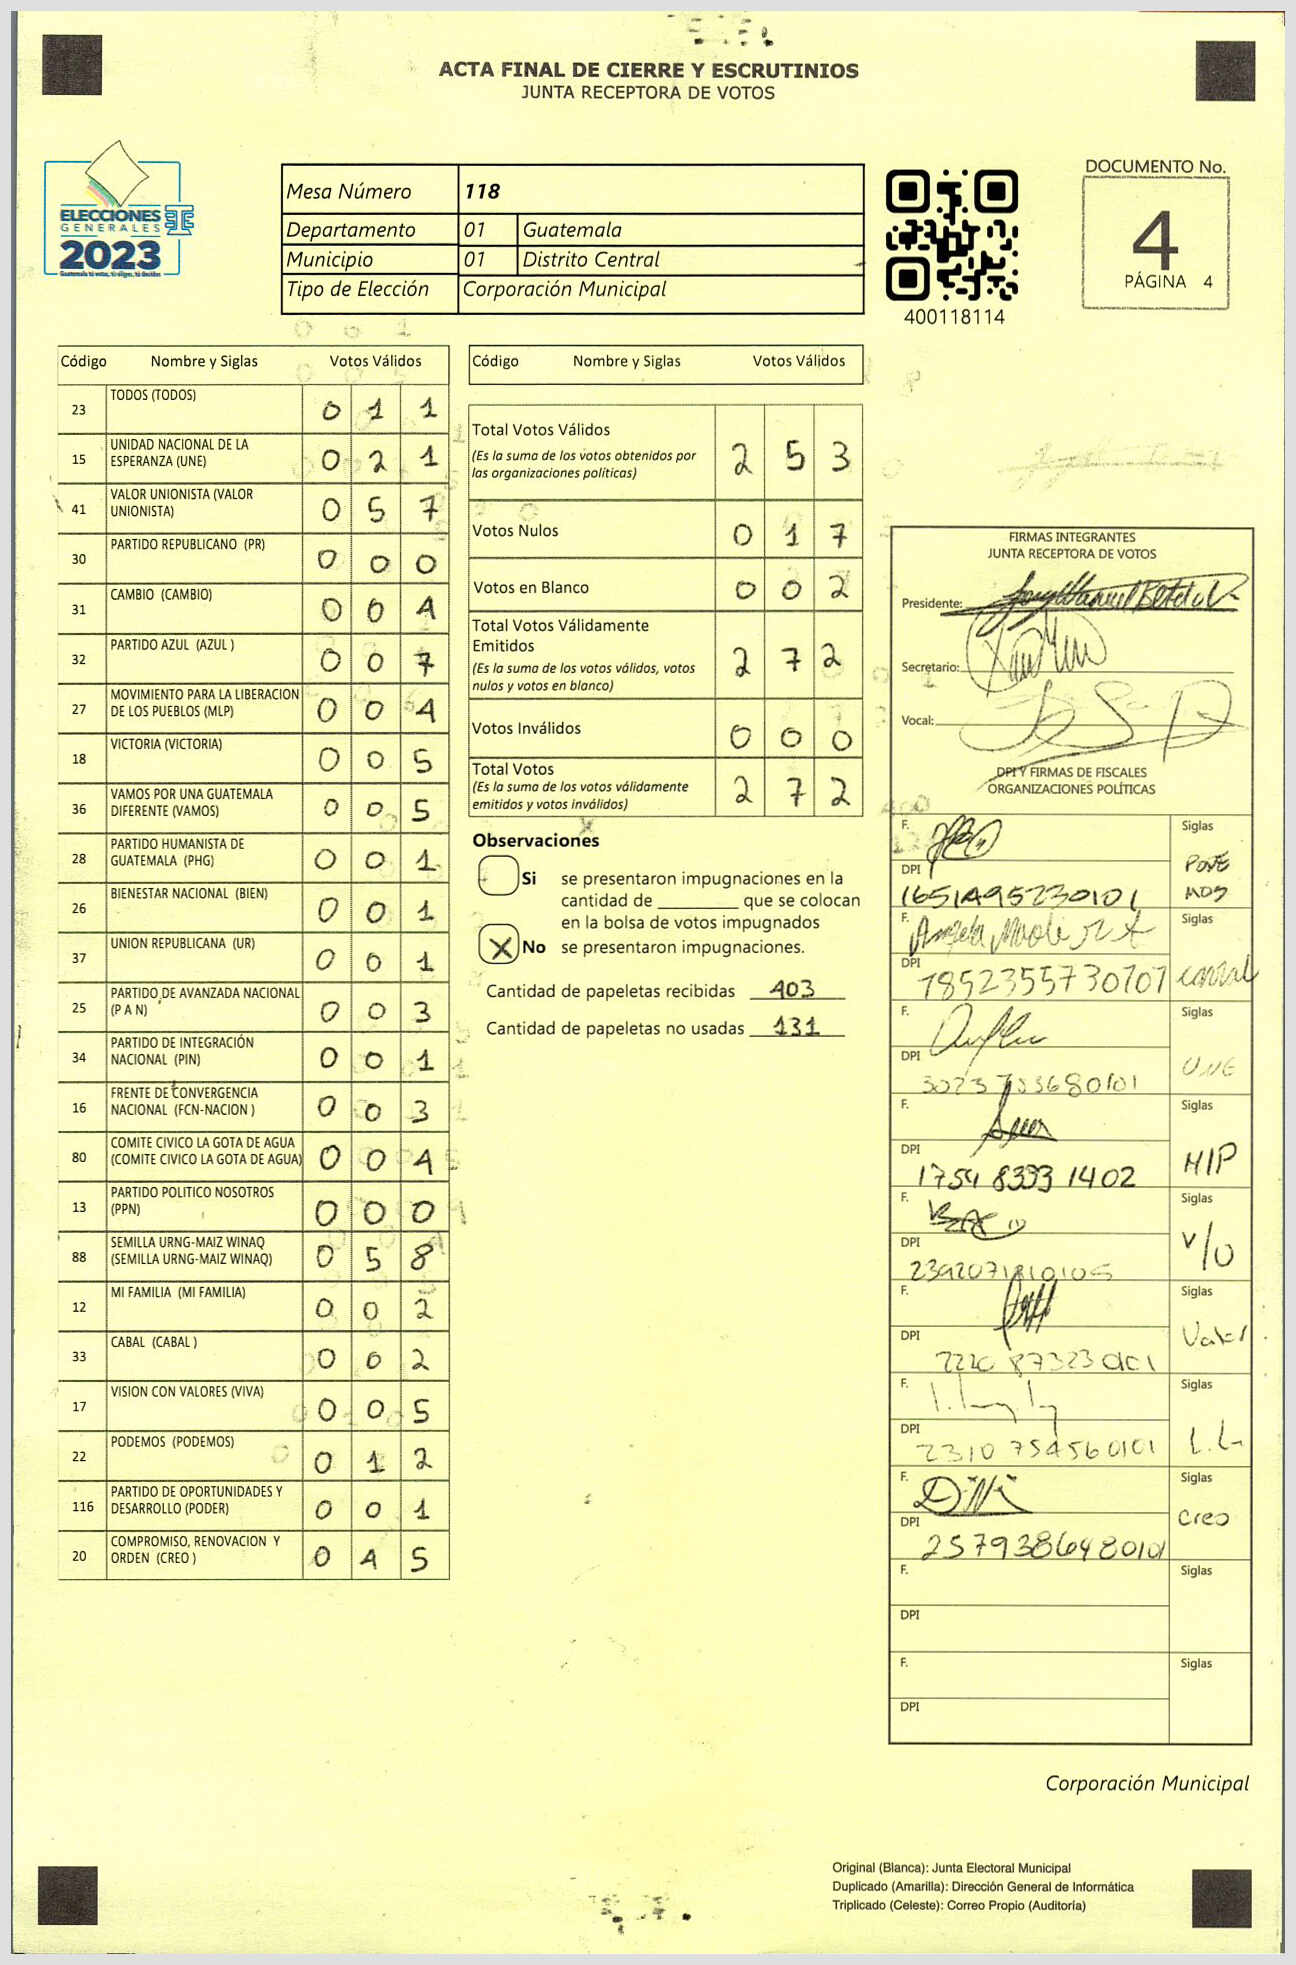 ACTA FINAL DE CIERRE Y ESCRUTINIOS
JUNTA RECEPTORA DE VOTOS
ELECCIONES
GENERALES
2023
Guatemala tú votas, tú eliges, tú decides
Mesa Número 118
Departamento 01 Guatemala
Municipio 01 Distrito Central
Tipo de Elección Corporación Municipal
400118114
DOCUMENTO No.
4
PÁGINA 4
Código Nombre y Siglas Votos Válidos
23 TODOS (TODOS) 0 1 1
15 UNIDAD NACIONAL DE LA
ESPERANZA (UNE) 0 2 1
41 VALOR UNIONISTA (VALOR
UNIONISTA) 0 5 7
30 PARTIDO REPUBLICANO (PR) 0 0 0
31 CAMBIO (CAMBIO) 0 0 4
32 PARTIDO AZUL (AZUL ) 0 0 7
27 MOVIMIENTO PARA LA LIBERACION
DE LOS PUEBLOS (MLP) 0 0 4
18 VICTORIA (VICTORIA) 0 0 5
36 VAMOS POR UNA GUATEMALA
DIFERENTE (VAMOS) 0 0 5
28 PARTIDO HUMANISTA DE
GUATEMALA (PHG) 0 0 1
26 BIENESTAR NACIONAL (BIEN) 0 0 1
37 UNION REPUBLICANA (UR) 0 0 1
25 PARTIDO DE AVANZADA NACIONAL
(P A N) 0 0 3
34 PARTIDO DE INTEGRACIÓN
NACIONAL (PIN) 0 0 1
16 FRENTE DE CONVERGENCIA
NACIONAL (FCN-NACION ) 0 0 3
80 COMITE CIVICO LA GOTA DE AGUA
(COMITE CIVICO LA GOTA DE AGUA) 0 0 4
13 PARTIDO POLITICO NOSOTROS
(PPN) 0 0 0
88 SEMILLA URNG-MAIZ WINAQ
(SEMILLA URNG-MAIZ WINAQ) 0 5 8
12 MI FAMILIA (MI FAMILIA) 0 0 2
33 CABAL (CABAL ) 0 0 2
17 VISION CON VALORES (VIVA) 0 0 5
22 PODEMOS (PODEMOS) 0 1 2
116 PARTIDO DE OPORTUNIDADES Y
DESARROLLO (PODER) 0 0 1
20 COMPROMISO, RENOVACION Y
ORDEN (CREO ) 0 4 5
Código Nombre y Siglas Votos Válidos
Total Votos Válidos
(Es la suma de los votos obtenidos por
las organizaciones políticas) 2 5 3
Votos Nulos 0 1 7
Votos en Blanco 0 0 2
Total Votos Válidamente
Emitidos
(Es la suma de los votos válidos, votos
nulos y votos en blanco) 2 7 2
Votos Inválidos 0 0 0
Total Votos
(Es la suma de los votos válidamente
emitidos y votos inválidos) 2 7 2
Observaciones
Si se presentaron impugnaciones en la
cantidad de ________ que se colocan
en la bolsa de votos impugnados
X No se presentaron impugnaciones.
Cantidad de papeletas recibidas 403
Cantidad de papeletas no usadas 131
FIRMAS INTEGRANTES
JUNTA RECEPTORA DE VOTOS
Presidente:
Secretario:
Vocal:
DPI Y FIRMAS DE FISCALES
ORGANIZACIONES POLÍTICAS
F. Siglas
DPI
1651495230101
F. Siglas
DPI
F. Siglas
DPI UNE
F. Siglas
DPI
1754 8393 1402
F. Siglas
DPI V/O
F. Siglas
DPI Valor
F. Siglas
DPI
2310 754560101 L.L
F. Siglas
DPI Creo
2579386480101
F. Siglas
DPI
F. Siglas
DPI
Corporación Municipal
Original (Blanca): Junta Electoral Municipal
Duplicado (Amarilla): Dirección General de Informática
Triplicado (Celeste): Correo Propio (Auditoría)